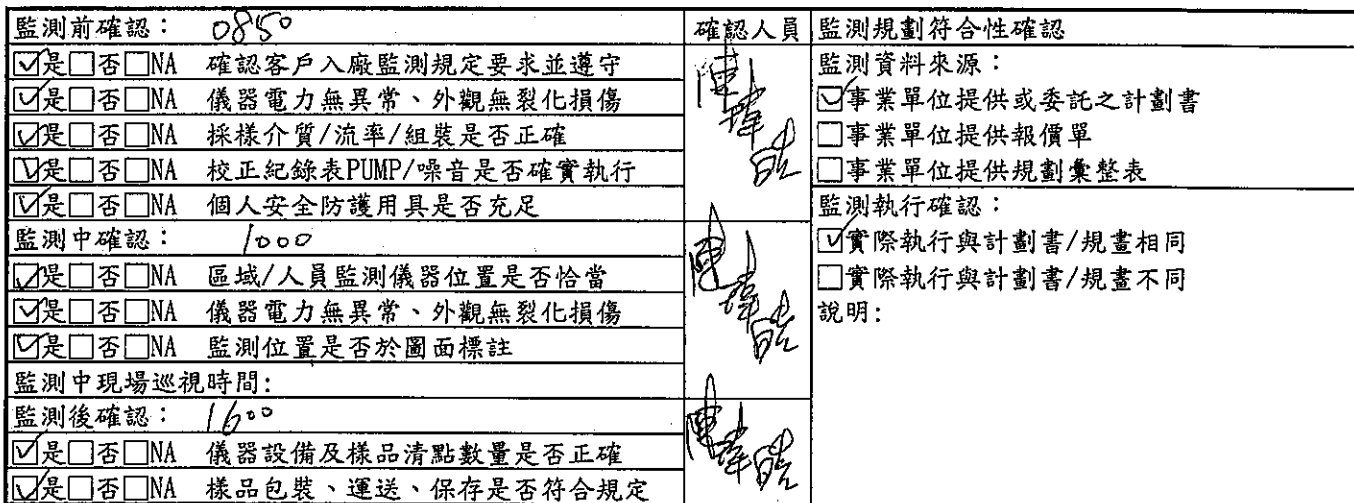 監測前確認： 0850
確認人員
監測規劃符合性確認
☑是☐否☐NA 確認客戶入廠監測規定要求並遵守
☑是☐否☐NA 儀器電力無異常、外觀無裂化損傷
☑是☐否☐NA 採樣介質/流率/組裝是否正確
☑是☐否☐NA 校正紀錄表PUMP/噪音是否確實執行
☑是☐否☐NA 個人安全防護用具是否充足
監測中確認： 1000
☑是☐否☐NA 區域/人員監測儀器位置是否恰當
☑是☐否☐NA 儀器電力無異常、外觀無裂化損傷
☑是☐否☐NA 監測位置是否於圖面標註
監測中現場巡視時間:
監測後確認： 1600
☑是☐否☐NA 儀器設備及樣品清點數量是否正確
☑是☐否☐NA 樣品包裝、運送、保存是否符合規定
監測資料來源：
☑事業單位提供或委託之計劃書
☐事業單位提供報價單
☐事業單位提供規劃彙整表
監測執行確認：
☑實際執行與計劃書/規畫相同
☐實際執行與計劃書/規畫不同
說明: